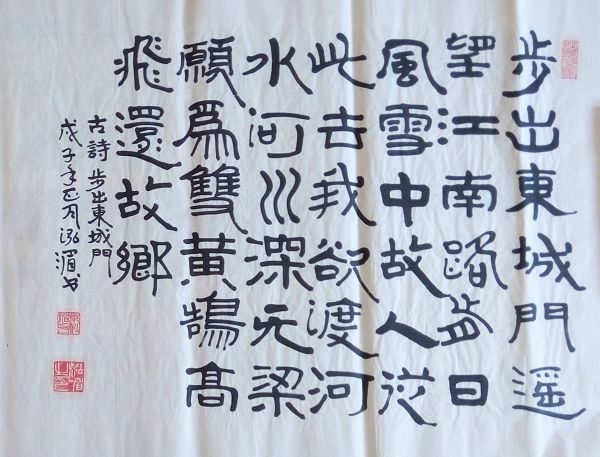 步出東城門遥
望江南路前日
風雪中故人從
此去我欲渡河
水河川深无梁
願爲雙黃鵠高
飛還故鄉
古詩步出東城門
戊子年正月泓湄书